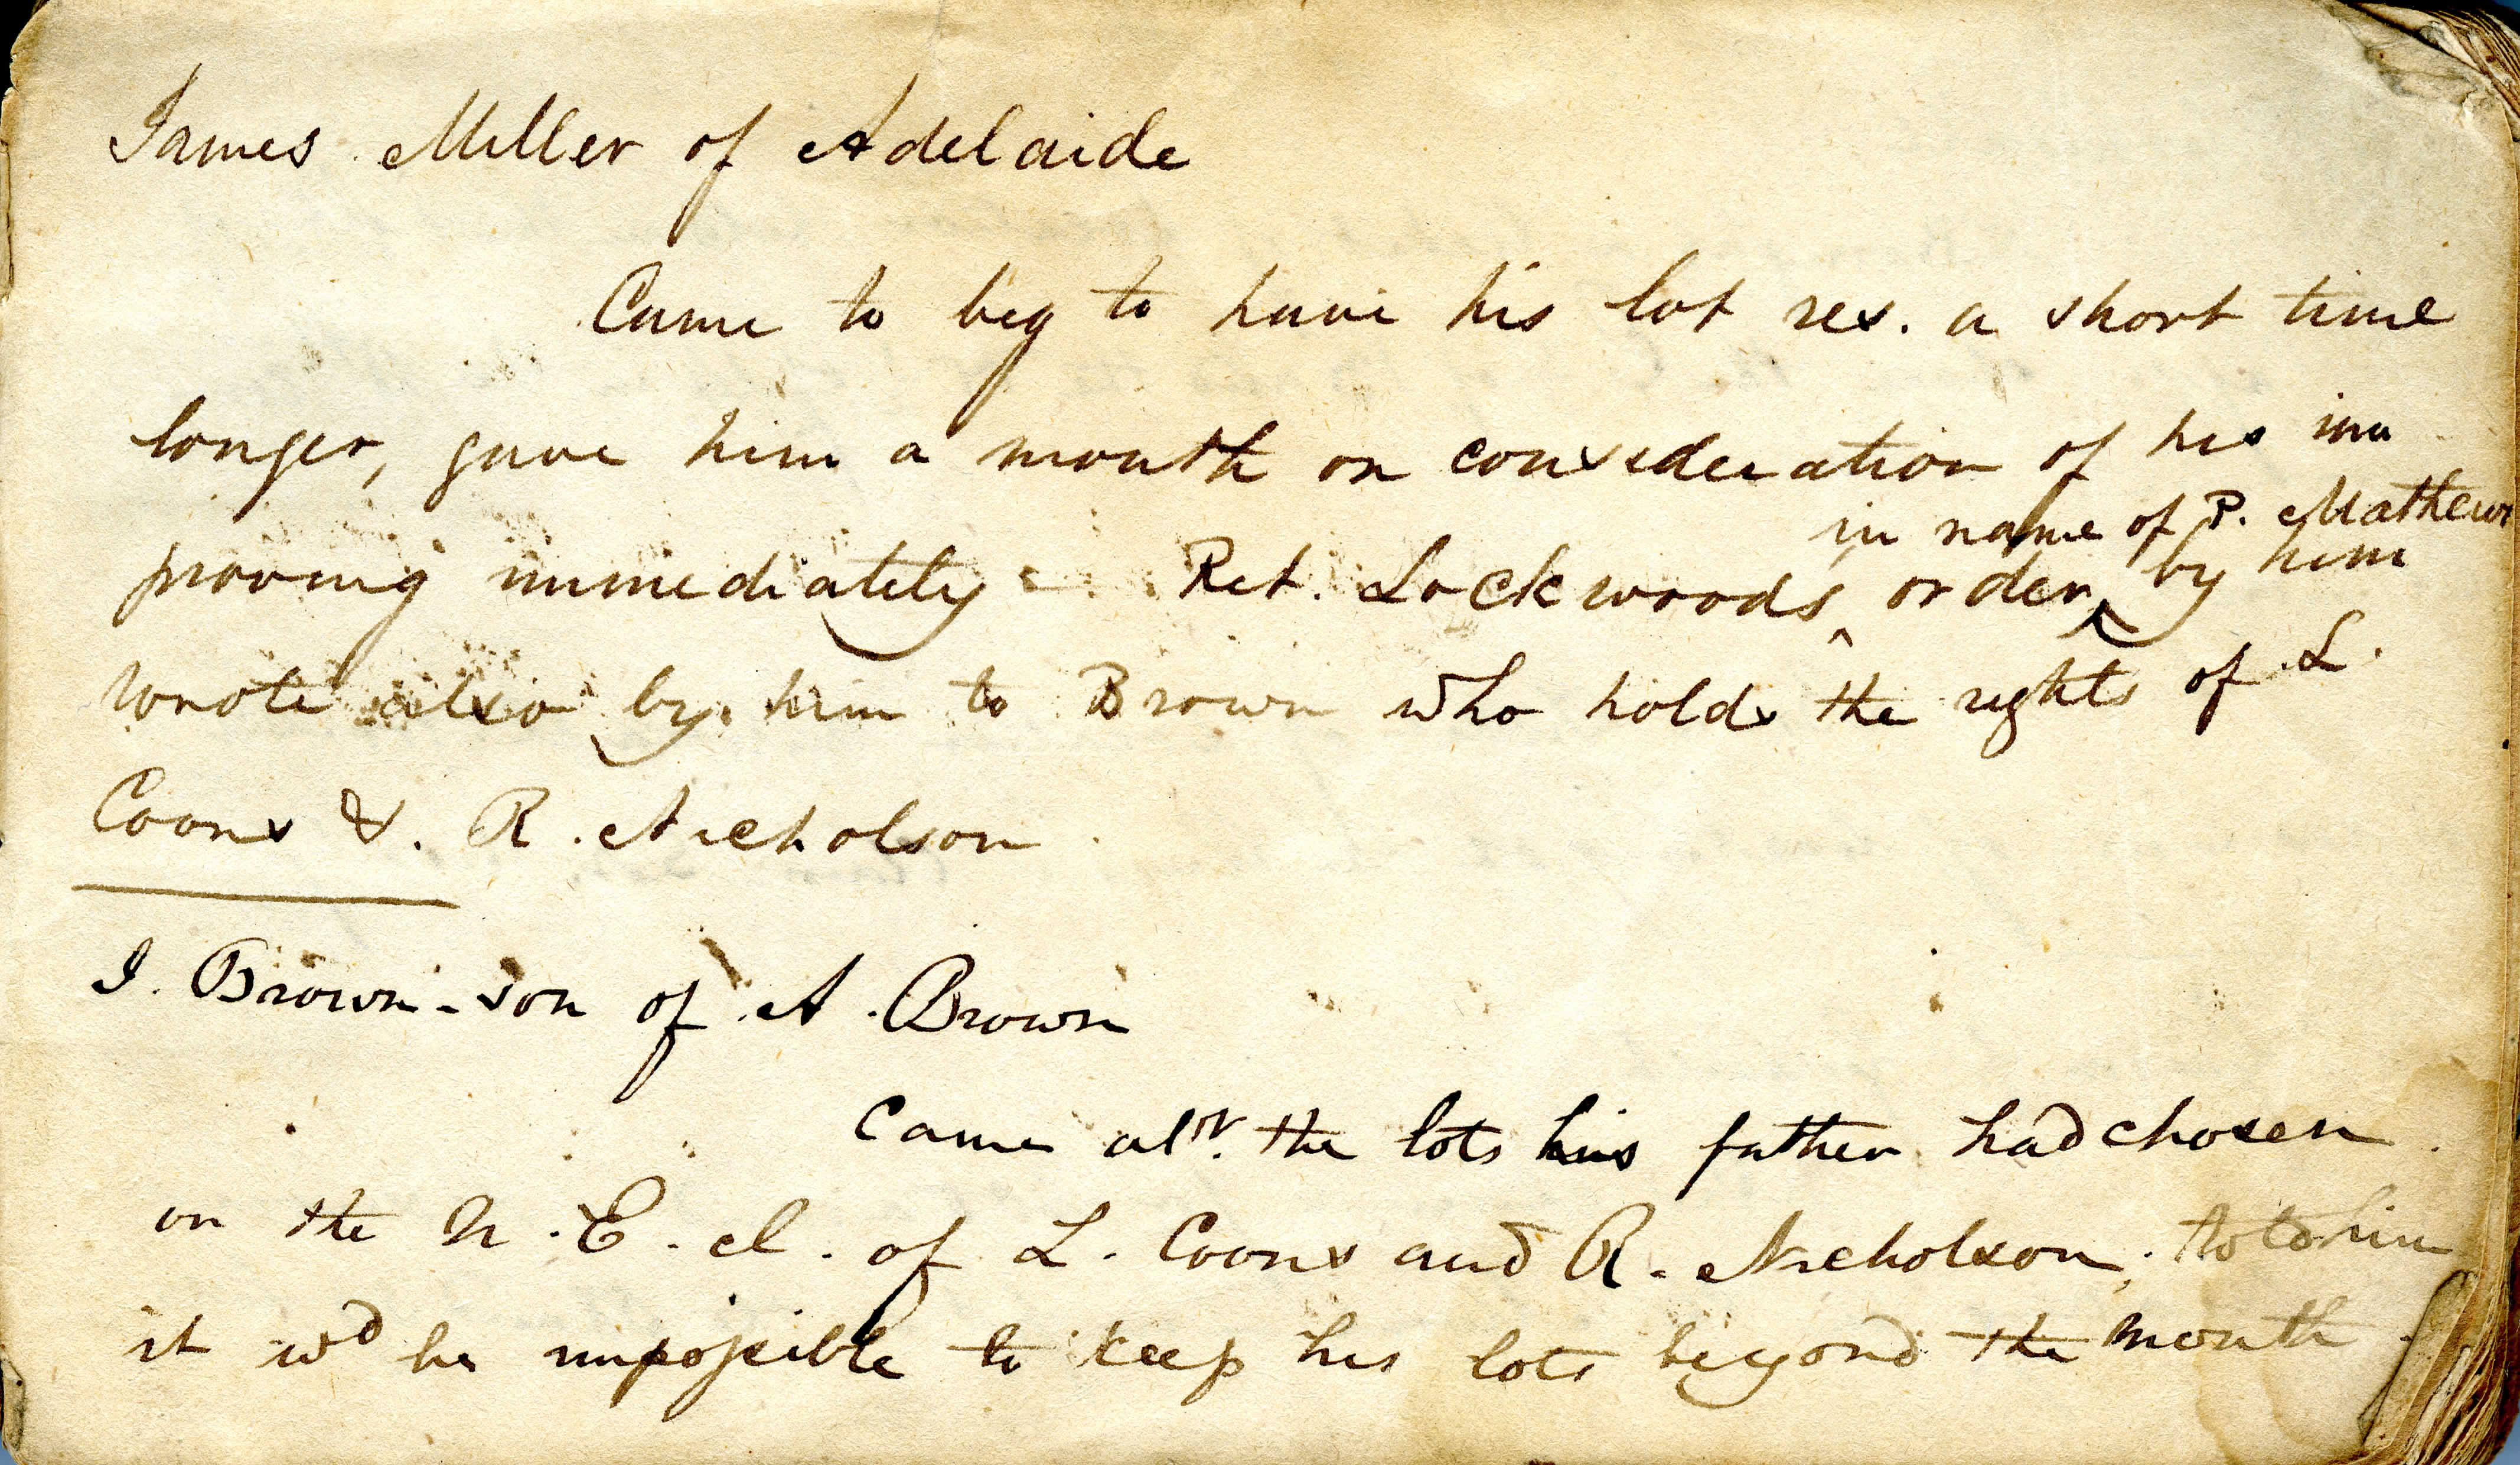 James Miller of Adelaide
Came to beg to have his lot res. a short time
longer, gave him a month on consideration of his im
in name of P. Mathews
proving immediately = Ret. Lockwoods order by him
wrote also by him to Brown who holds the rights of L.
Coons &. R. Nicholson
J. Brown - son of A. Brown
Came abt. the lots his father had chosen
on the N. E. cl. of L. Coons and R. Nicholson; told him
it wd be impossible to keep his lots beyond the month